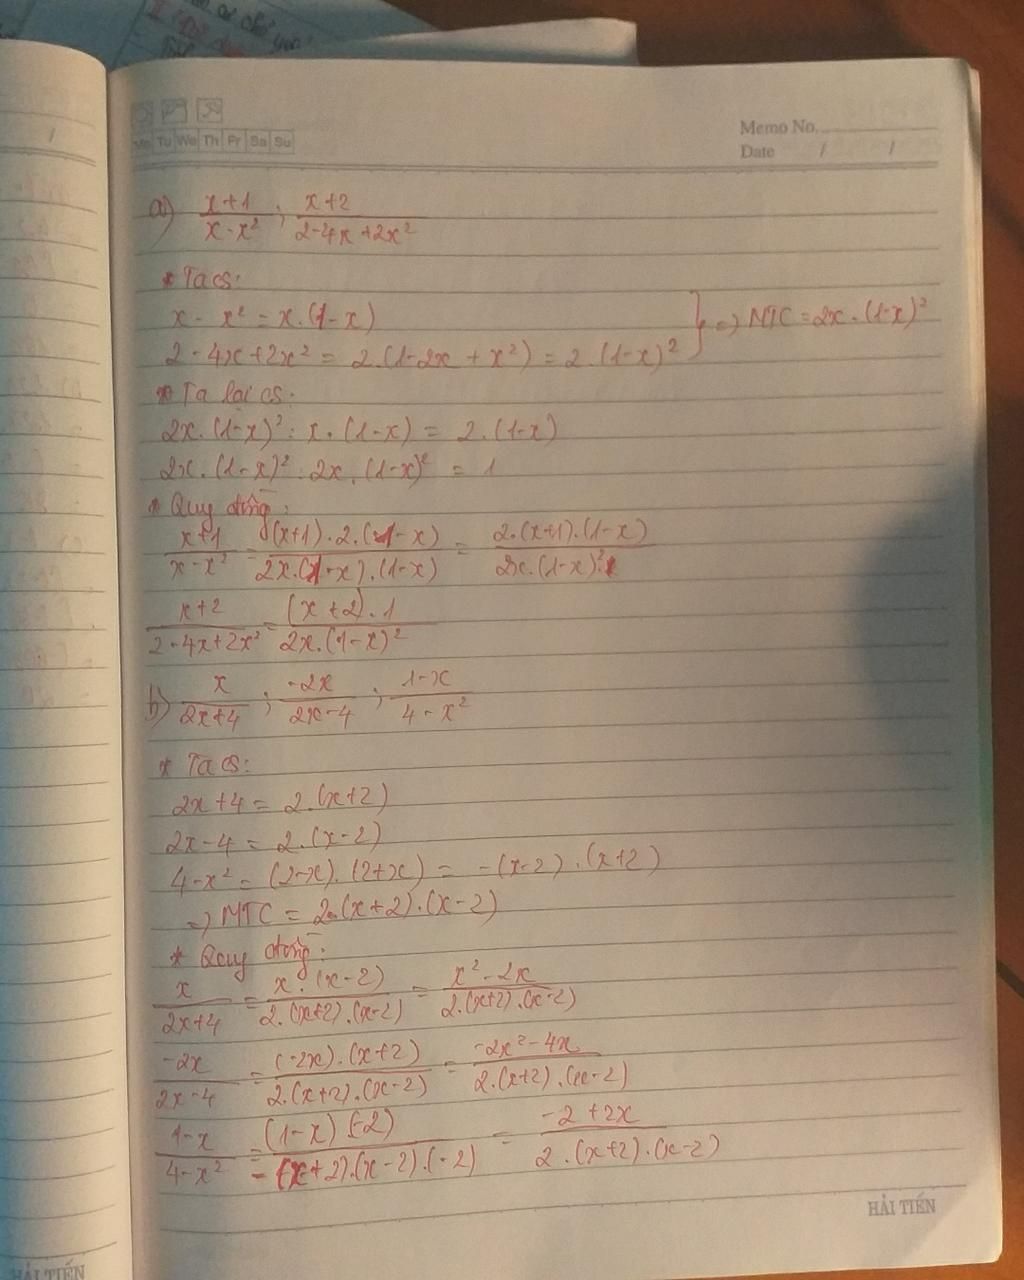 Tu We Th Fr Sa Su
Memo No.
Date / /
a) x+1/x-x² ; x+2/2-4x+2x²
* Ta cs:
x - x² = x.(1-x)
2-4x+2x² = 2.(1-2x+x²) = 2.(1-x)² } => MTC = 2x.(1-x)²
* Ta lại cs:
2x.(1-x)² : x.(1-x) = 2.(1-x)
2x.(1-x)² : 2x.(1-x)² = 1
* Quy đồng:
x+1/x-x² = (x+1).2.(1-x)/2x.(1-x).(1-x) = 2.(x+1).(1-x)/2x.(1-x)²
x+2/2-4x+2x² = (x+2).1/2x.(1-x)²
b) x/2x+4 ; -2x/2x-4 ; 1-x/4-x²
* Ta cs:
2x+4 = 2.(x+2)
2x-4 = 2.(x-2)
4-x² = (2-x).(2+x) = -(x-2).(x+2)
=> MTC = 2.(x+2).(x-2)
* Quy đồng:
x/2x+4 = x.(x-2)/2.(x+2).(x-2) = x²-2x/2.(x+2).(x-2)
-2x/2x-4 = (-2x).(x+2)/2.(x+2).(x-2) = -2x²-4x/2.(x+2).(x-2)
1-x/4-x² = (1-x)(-2)/-(x+2).(x-2).(-2) = -2+2x/2.(x+2).(x-2)
HẢI TIẾN
HẢI TIẾN